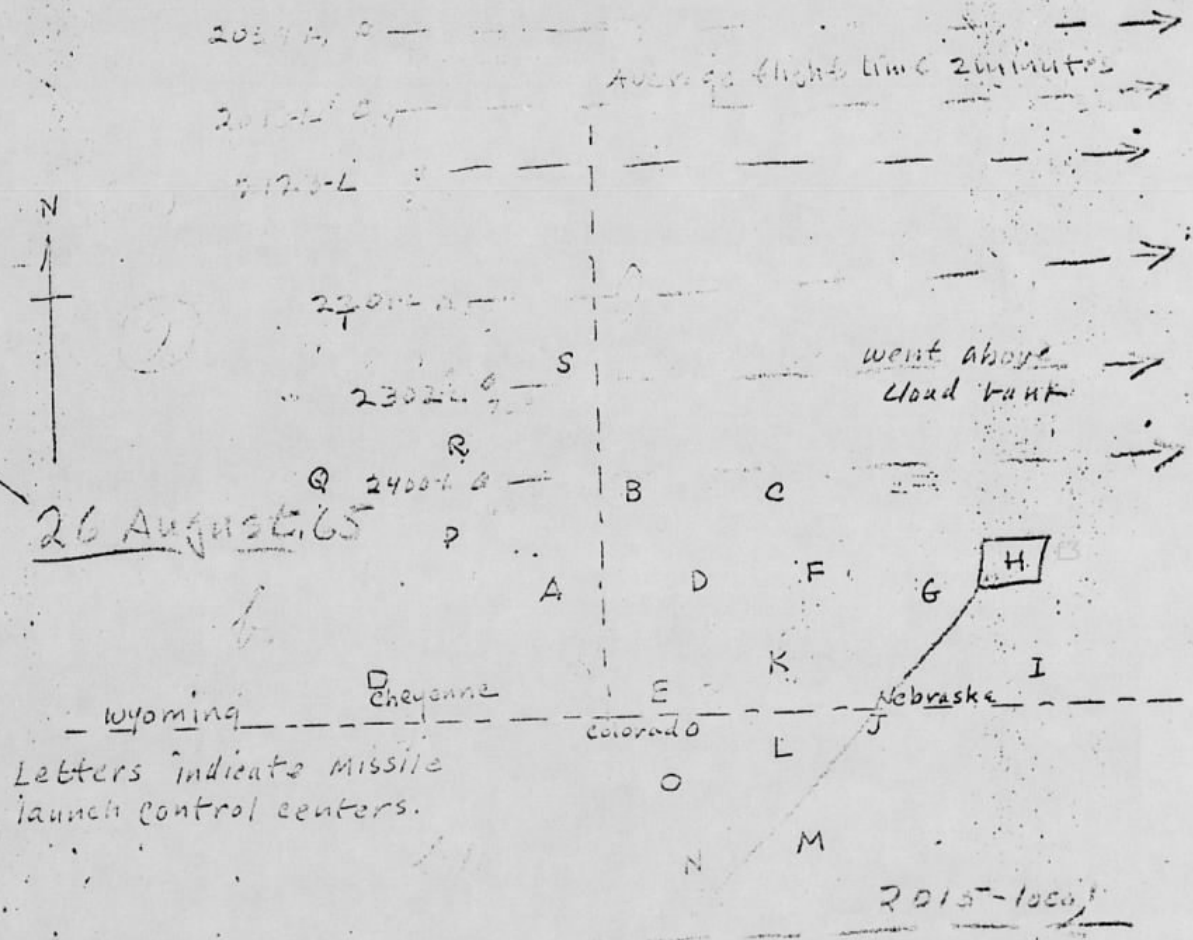 Average flight time 2 minutes
N
S
went above
cloud bank
R
Q 2400-L B C
26 August, 65
P
A D F G H
K
I
Cheyenne E
Wyoming Nebraska
Colorado J
L
Letters indicate missile
launch control centers.
O
M
N
2015-local